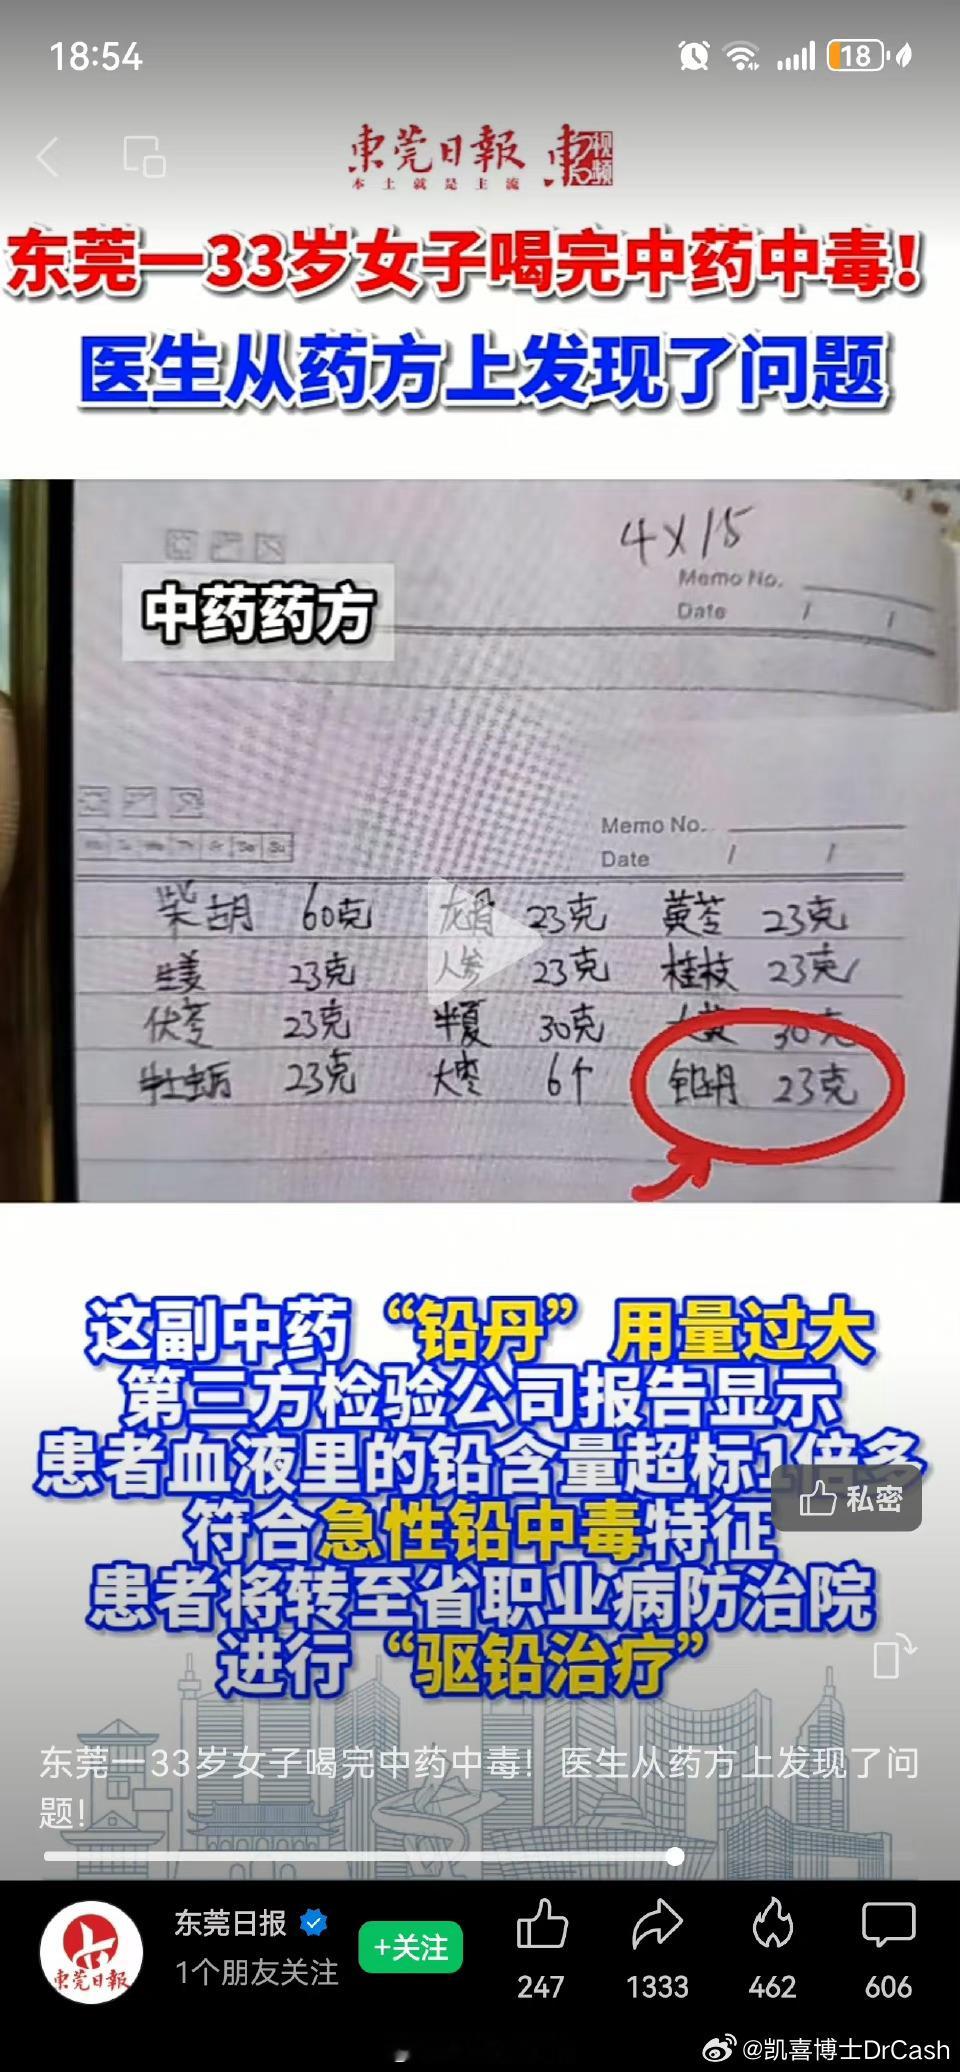 18:54
18
東莞日報
本土就是主流
视频
东莞一33岁女子喝完中药中毒！
医生从药方上发现了问题
4×15
Memo No.
Date / /
中药药方
Memo No.
Date / /
柴胡 60克 龙骨 23克 黄芩 23克
生姜 23克 人参 23克 桂枝 23克
伏苓 23克 半夏 30克 大黄 30克
牡蛎 23克 大枣 6个 铅丹 23克
这副中药“铅丹”用量过大
第三方检验公司报告显示
患者血液里的铅含量超标1倍多
私密
符合急性铅中毒特征
患者将转至省职业病防治院
进行“驱铅治疗”
东莞一33岁女子喝完中药中毒！医生从药方上发现了问
题！
東莞日報
东莞日报
1个朋友关注
+关注
247 1333 462 606
@凯喜博士DrCash